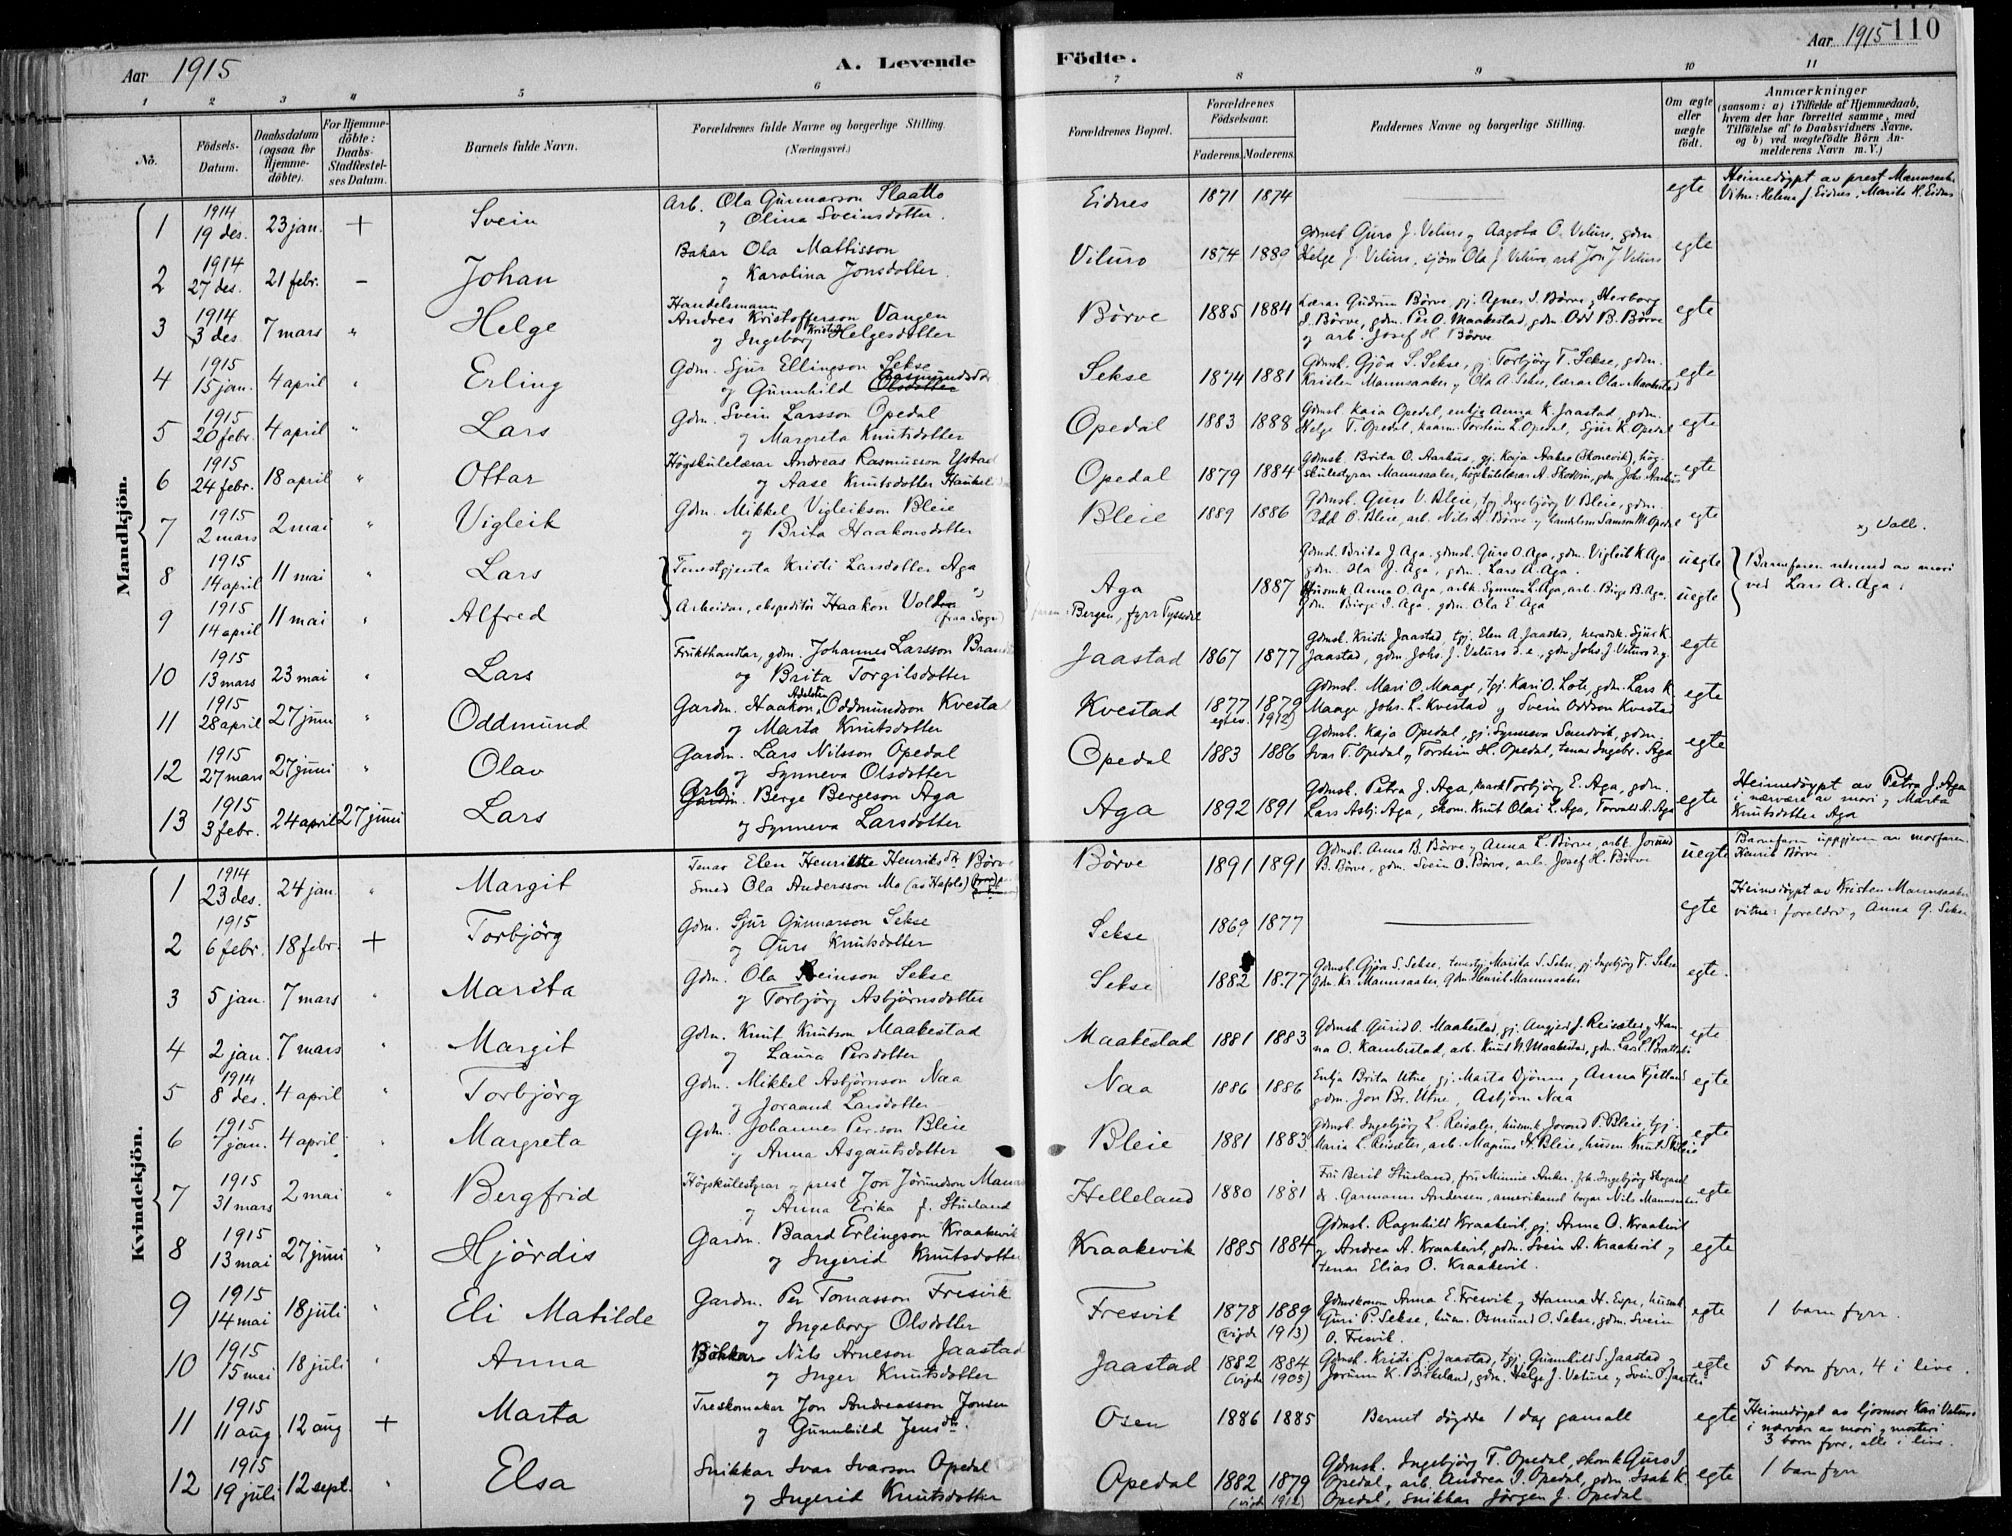 Aar 1915
A. Levende
Födte.
Aar 1915
110
1 2 3 4 5 6 7 8 9 10 11
No.
Födsels-Datum.
Daabsdatum (ogsaa for Hjemme-döbte).
For Hjemme-döbte: Daabs-Stadfæstel-ses Datum.
Barnets fulde Navn.
Forældrenes fulde Navne og borgerlige Stilling.
(Næringsvei.)
Forældrenes Bopæl.
Forældrenes Födselsaar.
Faderens. Moderens.
Faddernes Navne og borgerlige Stilling.
Om ægte eller uægte födt.
Anmærkninger
(saasom: a) i Tilfælde af Hjemmedaab, hvem der har forrettet samme, med Tilföielse af to Daabsvidners Navne, og b) ved uægtefödte Börn An-melderens Navn m. V.)
Mandkjön.
1 1914 19 des. 23 jan. + Svein Arb. Ola Gunnarson Slaatto
og Olina Sveinsdotter. Eidnes 1871 1874 egte Heimedöypt av prest Mannsaaker
Vitne: Helena J. Eidnes, Marita H. Eidnes
2 1914 27 des. 21 febr. – Johan Bakar Ola Mattisson
og Karolina Jonsdotter. Viluro 1874 1889 Gdmsk. Guro J. Veluro, Aagota O. Veluro, gdm.
Helge J. Veluro, sjöm Ola J. Veluro, arb. Jon J. Veluro egte
3 1914 3 des. 7 mars " Helge Handelsmann
Andres Kristofferson Vangen
og Ingeborg Kristi Helgesdotter Börve 1885 1884 Lærar Gudrun Börve, gj. Agnes I. Börve, Herborg
I. Börve, gdm. Per O. Maakestad, gdm. Odd B. Börve
og arb. Josef H. Börve egte
4 1915 15 jan. 4 april " Erling Gdm. Sjur Ellingson Sekse
og Gunnhild Olsdotter Sekse 1874 1881 Gdmsk. Gjöa S. Sekse, gj. Torbjörg T. Sekse, gdm.
Kristen Mannsaaker, Ola A. Sekse, lærar Olav Maakestad egte
5 1915 20 febr. 4 april " Lars Gdm. Svein Larsson Opedal
og Margreta Knutsdotter Opedal 1883 1888 Gdmsk. Kaia Opedal, enkja Anna K. Jaastad, gdm.
Helge T. Opedal, kaarm. Torstein L. Opedal, Sjur K. Opedal egte
6 1915 24 febr. 18 april " Ottar Högskulelærar Andreas Rasmusson Ystad
og Aase Knutsdotter Haukeli Opedal 1879 1884 Gdmsk. Brita O. Aarhus, gj. Kaja Aakre (Skonevik), hög-
skulestyrar Mannsaaker, högskulelærar A. Skodvin, gdm. Johs Aarhus egte
7 1915 2 mars 2 mai " Vigleik Gdm. Mikkel Vigleikson Bleie
og Brita Haakonsdotter Bleie 1889 1886 Gdmsk. Guro V. Bleie, tgj. Ingebjörg V. Bleie, gdm.
Odd O. Bleie, arb. Nils H. Börve, handelsm Samson M. Opedal egte
8 1915 14 april 11 mai " Lars Tenestgjenta Kristi Larsdotter Aga Aga 1887 Gdmsk. Brita J. Aga, gdmsk. Guro O. Aga, gdm. Vigleik K. Aga
gdm. Ola J. Aga, gdm. Lars A. Aga. uegte Barnefaren utnemd av mori
ved Lars A. Aga.
9 1915 14 april 11 mai " Alfred Arbeidar, ekspeditör Haakon Volden
(fraa Sogn) Bergen, fyrr Tyssedal Husmk. Anna O. Aga, arbk. Synneva L. Aga, arb. Birge B. Aga,
gdm. Börge I. Aga, gdm. Ola E. Aga uegte
x) Vall.
10 1915 13 mars 23 mai " Lars Frukthandlar, gdm. Johannes Larsson
og Brita Torgilsdotter Jaastad 1867 1877 Gdmsk. Kristi Jaastad, tgj. Elen A. Jaastad, heradsk. Sjur K.
Jaastad, gdm Johs. J. Veluro d.e., gdm. Johs J. Veluro d.y. egte
11 1915 28 april 27 juni " Oddmund Gardm. Haakon Adelsten Oddmundson Kvestad
og Marta Knutsdotter Kvestad 1877 1879 1912) Gdmsk. Mari O. Maage, tgj. Kari O. Lote, gdm. Lars K.
Maage, Johs. L. Kvestad og Svein Oddson Kvestad egte
12 1915 27 mars 27 juni " Olav Gardm. Lars Nilsson Opedal
og Synneva Olsdotter Opedal 1883 1886 Gdmsk. Kaja Opedal, gj. Synneva Sandvik, gdm.
Ivar T. Opedal, Torstein H. Opedal, tenar Ingebr. Aga egte
13 1915 3 febr. 24 april 27 juni Lars Arb. Gardm. Berge Bergeson Aga
og Synneva Larsdotter Aga 1892 1891 Gdmsk. Petra J. Aga, kaark Torbjörg E. Aga, gdm.
Lars Asbj. Aga, skom. Knut Olai L. Aga, Torvald A. Aga egte Heimedöypt av Petra J. Aga
i nærvære av mori og Marta
Knutsdotter Aga
Kvindekjön.
1 1914 23 des. 24 jan. " Margit Tenar Elen Henriette Henriksdtr. Börve
Smed Ola Andersson Mo (av Hafslo) Börve 1891 1891 Gdmsk. Anna B. Börve, Anna L. Börve, arbk. Jorund
B. Börve, gdm. Svein O. Börve, arb. Josef H. Börve uegte Barnefaren uppgjeven av morfaren
Henrik Börve.
2 1915 6 febr. 18 febr. + Torbjörg Gdm. Sjur Gunnarson Sekse
og Guro Knutsdotter Sekse 1869 1877 egte Heimedöypt av Kristen Mannsaaker
vitne: foreldri og Anna G. Sekse
3 5 jan. 7 mars " Marita Gdm. Ola Sveinson Sekse
og Torbjörg Asbjörnsdotter Sekse 1882 1877 Gdmsk. Gjöa S. Sekse, tenestgj. Marita S. Sekse, gj. Ingebjörg T. Sekse
gdm. Kr. Mannsaaker, gdm. Henrik Mannsaaker egte.
4 2 jan. 7 mars " Margit Gdm. Knut Knutson Maakestad
og Laura Persdotter Maakestad 1881 1883 Gdmsk. Gurid O. Maakestad, gj. Angjerd J. Reisæter, Han-
na O. Kambestad, arb. Knut N. Maakestad, gdm. Lars L. egte
5 1914 8 des. 4 april " Torbjörg Gdm. Mikkel Asbjörnson Naa
og Joraand Larsdotter Naa 1886 1886 Enkja Brita Utne, gj. Marta Djönne, Anna Tjetland
gdm. Jon Br. Utne, Asbjörn Naa egte
6 1915 7 jan. 4 april " Margreta Gdm. Johannes Person Bleie
og Anna Asgautsdotter Bleie 1881 1883 Gdmsk. Ingebjörg L. Reisæter, husmk. Jorond P. Bleie, tgj.
Maria L. Reisæter, arb. Magnus H. Bleie, husm. Knut S. Bleie egte
7 1915 31 mars 2 mai " Bergfrid Högskulestyrar og prest Jon Jörundson
og Anna Erika f. Stusland Helleland 1880 1881 Fru Berit Stusland, fru Minnie Anker, frk. Ingebjörg
dr. Garmann Andersen, amerikansk borgar Nils Mannsaaker egte
8 1915 13 mai 27 juni " Hjördis Gardm. Baard Erlingson Kraakevik
og Ingerid Knutsdotter Kraakevik 1885 1884 Gdmsk. Ragnhild Kraakevik, gj. Anna O. Kraakevik
og Andrea A. Kraakevik, gdm. Svein A. Kraakevik og
tenar Elias O. Kraakevik. egte
9 1915 14 mai 18 juli " Eli Matilde Gardm. Per Tomasson Fresvik
og Ingeborg Olsdotter Fresvik 1878 1889 (vigde 1913) Gdmskonon Anna E. Fresvik og Hanna H. Espe, husmk.
Guri P. Sekse, husm. Osmund O. Sekse, gdm. Svein
O. Fresvik. egte 1 barn fyrr.
10 1915 15 mai 18 juli " Anna Bökkar Nils Arneson Jaastad
og Inger Knutsdotter Jaastad 1882 1884 (vigde 1905) Gdmsk. Kristi P. Jaastad, tgj. Gunnhild S. Jaastad og
Jorunn K. Birkeland, gdm. Helge J. Veluro og Svein P. Jaastad egte 5 born fyrr, 4 i live.
11 1915 11 aug. 12 aug. + Marta Treskomakar Jon Andreasson Jonsen
og Gunnhild Jensdtr. Osen 1886 1885 Barnet döydde 1 dag gamalt egte Heimedöypt av ljosmor Kari Veluro
i nærvær av mori og mosteri
3 born fyrr, alle i live.
12 1915 19 juli 12 sept. " Elsa Snikkar Ivar Ivarson Opedal
og Ingerid Knutsdotter Opedal 1882 1879 (vigde 1912) Gdmsk. Ingebjörg T. Opedal, skomk Guro I.
Opedal, arb. Andrea I. Opedal, gdm. Isak K.
Opedal, snikkar Jörgen J. Opedal egte 1 barn fyrr